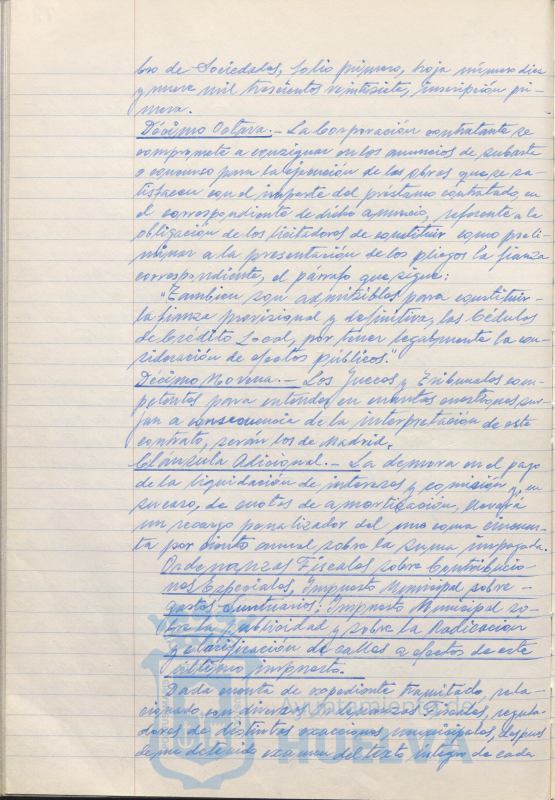 bro de Sociedades, folio primero, hoja número diez
y nueve mil trescientos veintisiete, inscripción pri-
mera.
Décimo Octava.- La Corporación contratante se
compromete a consignar en los anuncios de subasta
o concurso para la ejecución de las obras que se sa-
tisfacen con el importe del préstamo contratado, en
el correspondiente de dicho anuncio, referente a la
obligación de los licitadores de constituir como preli-
minar a la presentación de los pliegos la fianza
correspondiente, el párrafo que sigue:
"Tambien son admisibles para constituir
la fianza provisional y definitiva, las Cédulas
de Crédito Local, por tener legalmente la con-
sideración de efectos públicos."
Décimo Novena.- Los Jueces y Tribunales com-
petentes para entender en cuantas cuestiones sur-
jan a consecuencia de la interpretación de este
contrato, serán los de Madrid.
Cláusula Adicional.- La demora en el pago
de la liquidación de intereses y comisión y, en
su caso, de cuotas de amortización, llevará
un recargo penalizador del uno coma cincuen-
ta por ciento anual sobre la suma impagada.
Ordenanzas Fiscales sobre Contribucio-
nes Especiales, Impuesto Municipal sobre
gastos Suntuarios; Impuesto Municipal so-
bre la publicidad y sobre la Radicación
y clasificación de calles a efectos de este
último impuesto.
Dada cuenta de expediente tramitado, rela-
cionado con diversas Ordenanzas Fiscales, regula-
doras de distintas exacciones municipales, despues
de un detenido examen del texto íntegro de cada
Ayuntamiento de
HUELVA